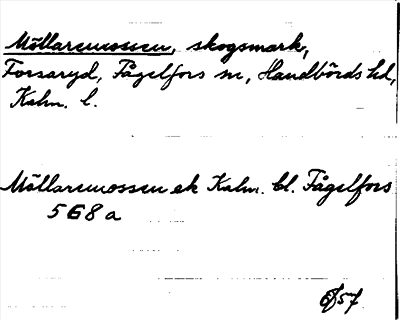 Möllaremossen, skogsmark,
Forsaryd, Fågelfors sn, Handbörds hd,
Kalm. l.
Möllaremossen ek Kalm. bl. Fågelfors
568a